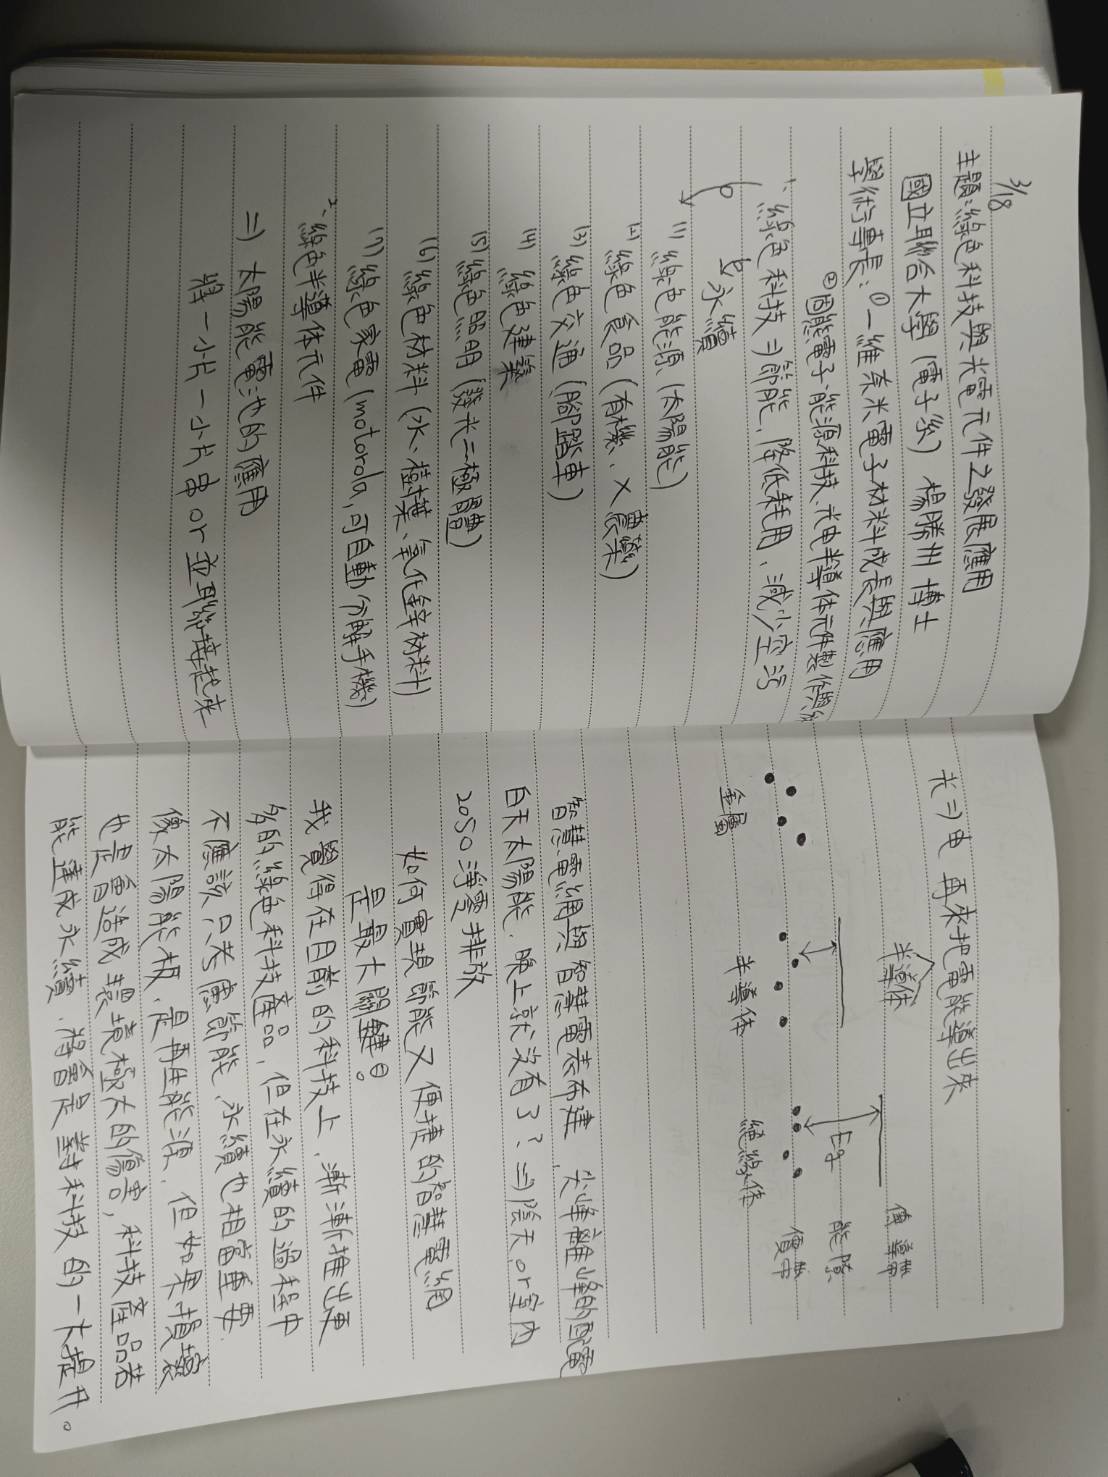 3/18
主題:綠色科技與光電元件之發展應用
國立聯合大學(電子系) 楊勝州 博士
學術專長:①一維奈米電子材料成長與應用
②固態電子、能源科技、光电半導体元件製作與分
1、綠色科技⇒節能、降低耗用、減少空污
永續
(1) 綠色能源(太陽能)
(2) 綠色食品(有機、×農藥)
(3) 綠色交通(腳踏車)
(4) 綠色建築
(5) 綠色照明(發光二極體)
(6) 綠色材料(水、植構、氧化鋅材料)
(7) 綠色家電(motorola,可自動分解手機)
2、綠色半導体元件
⇒太陽能電池的應用
將一小片一小片串or並聯接起來
光⇒电 再來把電能導出來
半導体
金屬 半導体 絕緣体
Eg
傳導帶
能隙
價帶
智慧電網與智慧電表布建、尖峰離峰的配電
白天太陽能,晚上就沒有了?⇒陰天or室內
2050淨零排放
如何實現節能又便捷的智慧電網
是最大關鍵。
我覺得在目前的科技上,漸漸推出更
多的綠色科技產品,但在永續的過程中
不應該只考慮節能、永續也相當重要,
像太陽能板,是再生能源,但如果損壞
也是會造成環境極大的傷害,科技產品若
能達成永續,將會是對科技的一大提升。